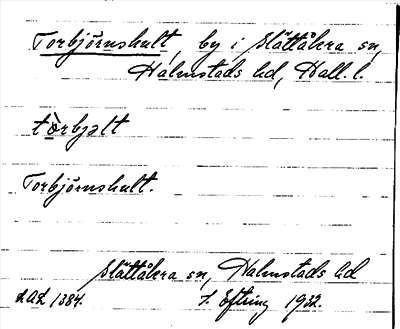 Torbjörnshult, by i Slättåkra sn,
Halmstads hd, Hall. l.
tòrbjəlt
Torbjörnshult.
Slättåkra sn, Halmstads hd
LAL 1384. J. Eftring 1932.